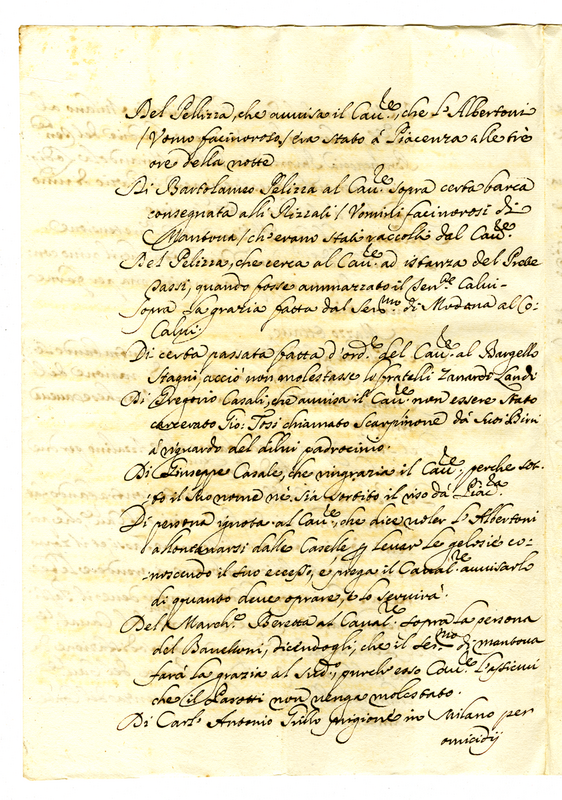 Del Pellizza, che avvisa il Cau.re, che l'Albertoni
/ Vomo facinoroso / era Stato á Piacenza alle trè
ore della notte
Di Bartolameo Pelizza al Cau.re sopra certa barca
consegnata alli Rizzali / Vomini facinorosi di
Mantoua / ch'erano Stati raccolti dal Cau.re
Del Pelizza, che cerca al Cau.re ad istanza del
passi, quando fosse ammazzato il Calui-
Sopra la grazia fatta dal Ser.mo di Modena al Co:
Calui:
Di certa passata fatta d'ord.e del Cau.re al Bargello
Stagni, acciò non molestasse li fratelli Zanardi Landi
Di Gregorio Casali, che avvisa il Cau.re non essere Stato
carcerato Gio: Tosi chiamato Scarpinone dá Suoi Birri
á riguardo del dilui padrocinio.
Di Giuseppe Casale, che ringrazia il Cau.re, perche sot-
to il Suo nome né Sia Sortito il riso dá Piac.za
Di persona ignota al Cau.re, che dice voler l'Albertoni
allontanarsi dalle Caselle p leuar le gelosie co-
noscendo il suo ecesso, e prega il Caual.re avvisarlo
di quanto deue oprare, e lo Seruirá.
Del March.e Beretta al Caual.re Sopra la persona
del dicendogli, che il Ser.mo di mantoua
fará la grazia al Sud.o, purche esso Cau.re l'assicuri
che il Parotti non venga molestato.
Di Carl' Antonio Grillo prigione in Milano per
omicidij